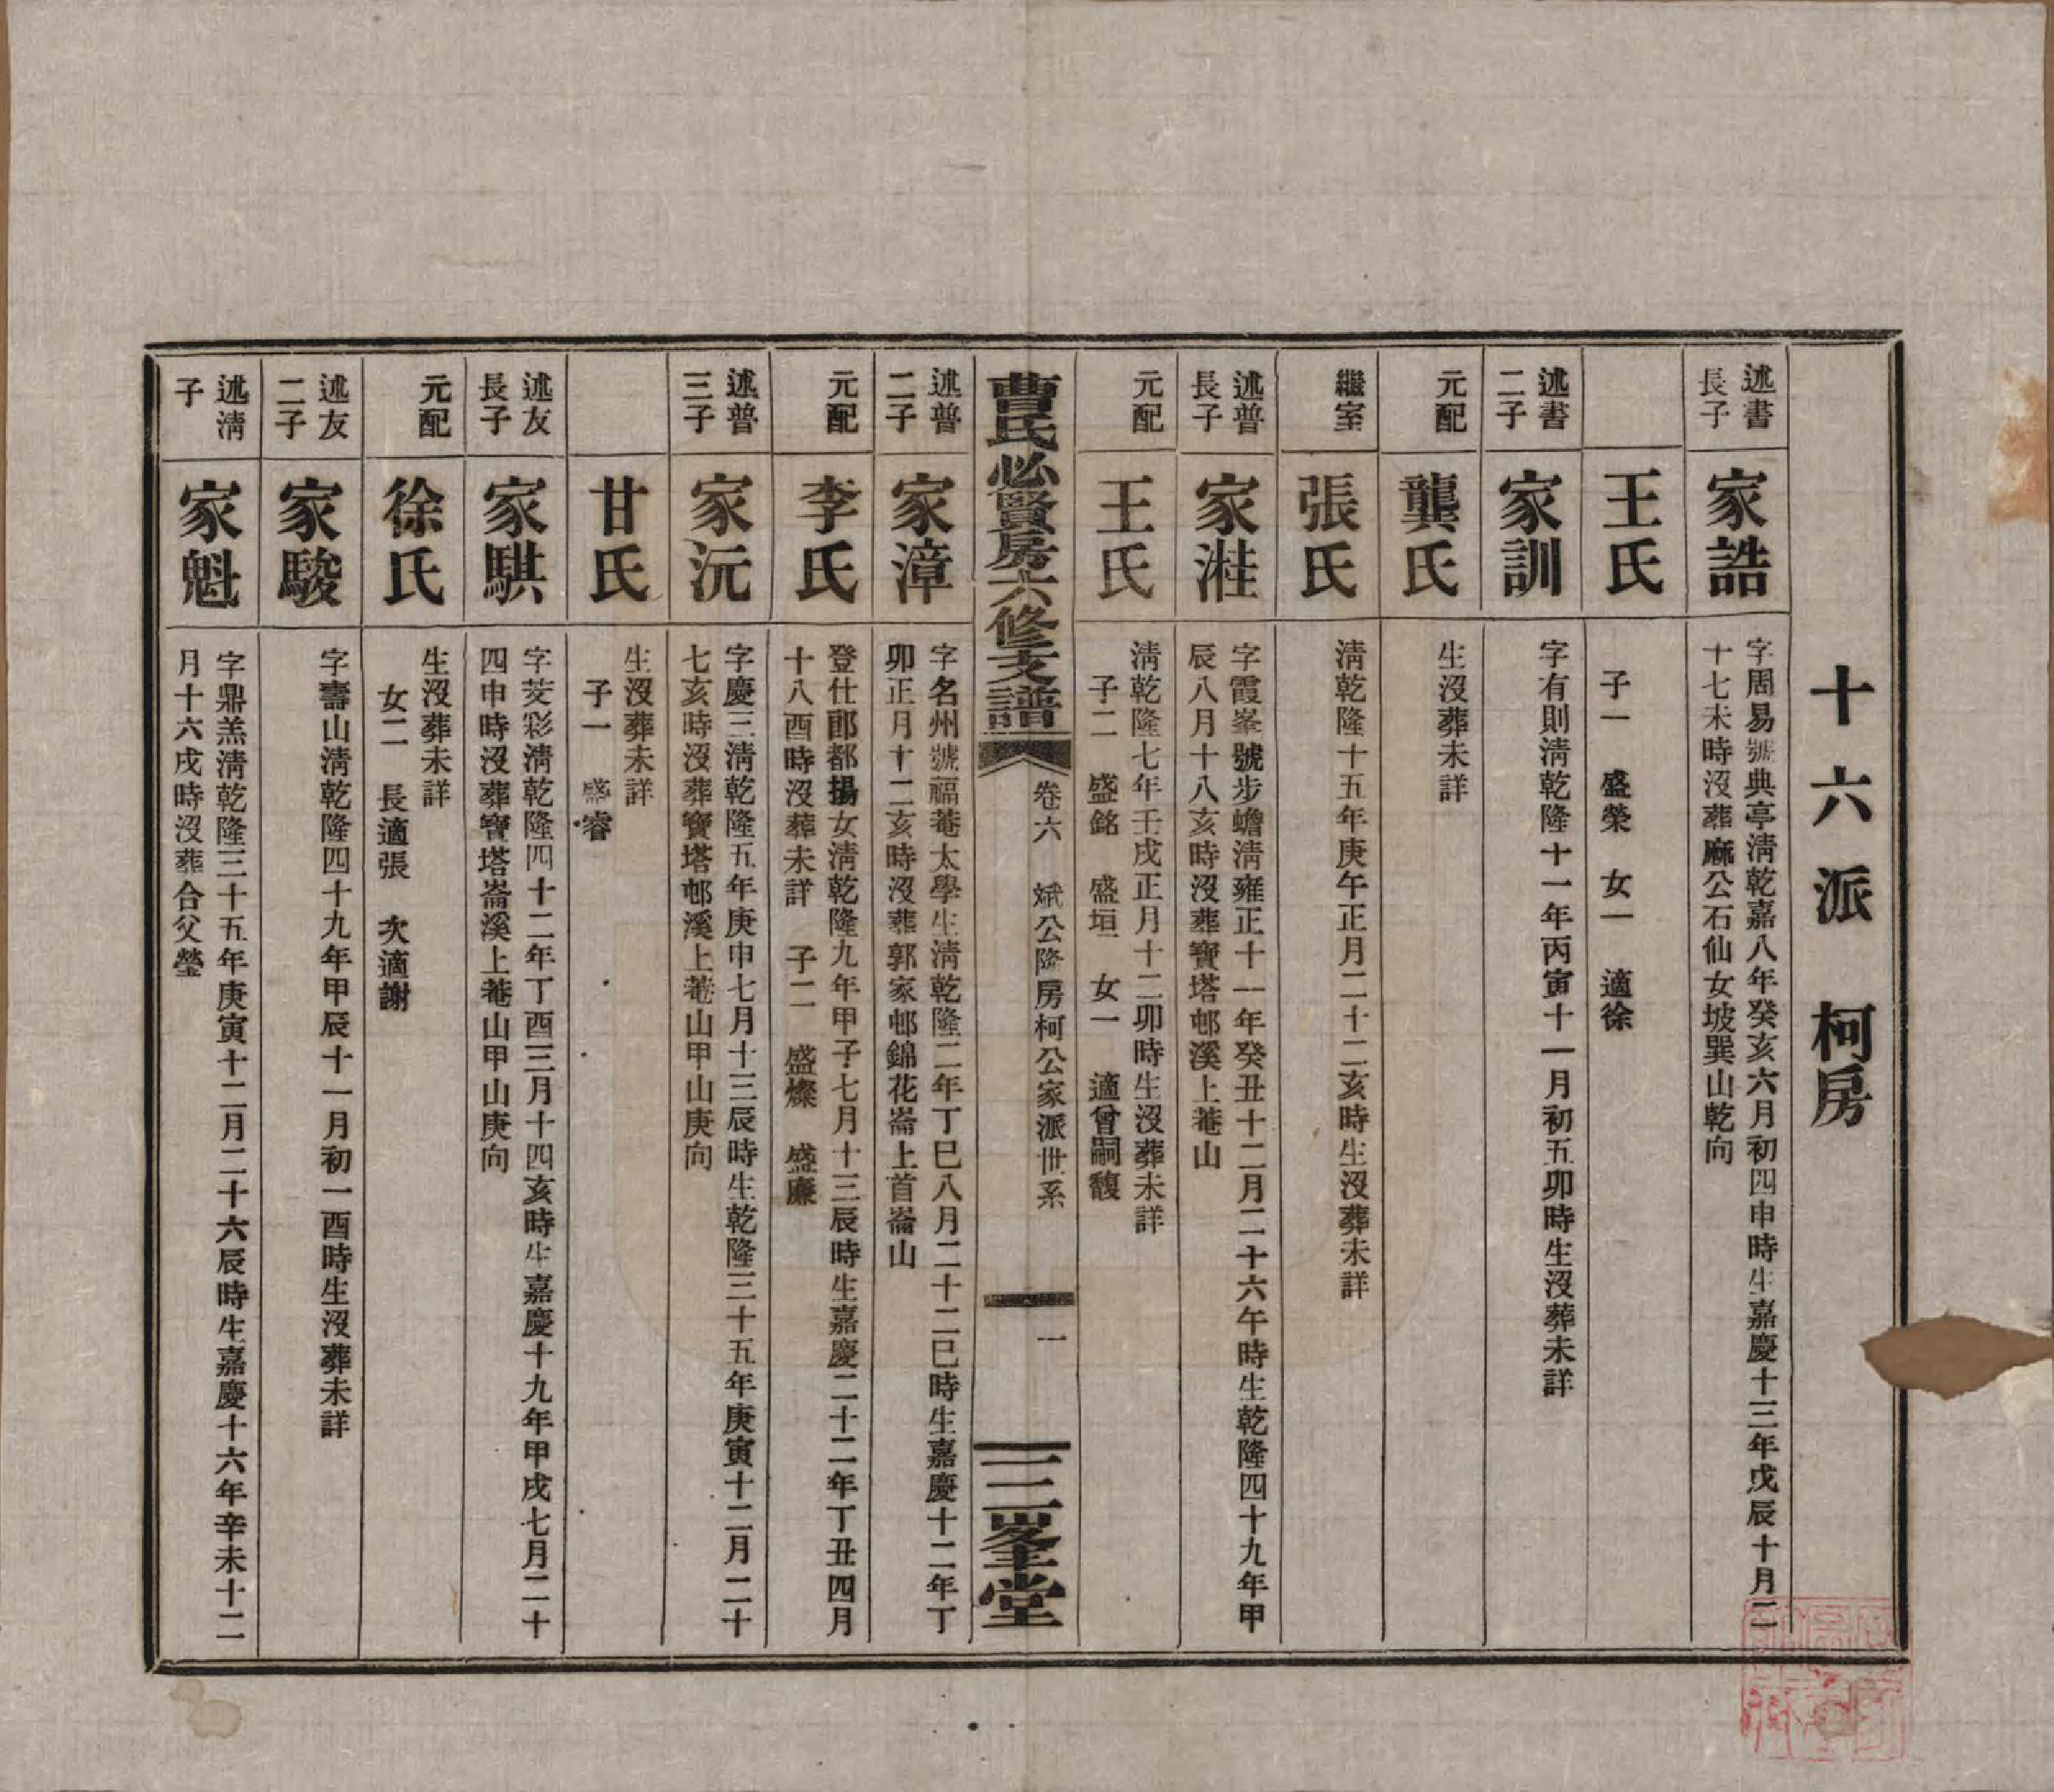 十六派 柯房
述書
長子
家誥
字周易號典亭淸乾嘉八年癸亥六月初四申時生嘉慶十三年戊辰十月二
十七未時沒葬麻公石仙女坡巽山乾向
王氏
子一 盛榮 女一 適徐
述書
二子
家訓
字有則淸乾隆十一年丙寅十一月初五卯時生沒葬未詳
元配
龔氏
生沒葬未詳
繼室
張氏
淸乾隆十五年庚午正月二十二亥時生沒葬未詳
述普
長子
家溎
字霞峯號步蟾淸雍正十一年癸丑十二月二十六午時生乾隆四十九年甲
辰八月十八亥時沒葬寶塔邨溪上菴山
元配
王氏
淸乾隆七年壬戌正月十二卯時生沒葬未詳
子二 盛銘 盛垣 女一 適曾嗣馥
曹氏必賢房六修支譜
卷六 斌公隆房柯公家派世系
一
三峯堂
述普
二子
家漳
字名州號福菴太學生淸乾隆二年丁巳八月二十二巳時生嘉慶十二年丁
卯正月十二亥時沒葬郭家邨錦花崙上首崙山
元配
李氏
登仕郎都揚女淸乾隆九年甲子七月十三辰時生嘉慶二十二年丁丑四月
十八酉時沒葬未詳 子二 盛燦 盛廉
述普
三子
家沅
字慶三淸乾隆五年庚申七月十三辰時生乾隆三十五年庚寅十二月二十
七亥時沒葬寶塔邨溪上菴山甲山庚向
甘氏
生沒葬未詳
子一 盛睿
述友
長子
家騏
字芰彩淸乾隆四十二年丁酉三月十四亥時生嘉慶十九年甲戌七月二十
四申時沒葬寶塔崙溪上菴山甲山庚向
元配
徐氏
生沒葬未詳
女二 長適張 次適謝
述友
二子
家駿
字壽山淸乾隆四十九年甲辰十一月初一酉時生沒葬未詳
述淸
子
家魁
字鼎羔淸乾隆三十五年庚寅十二月二十六辰時生嘉慶十六年辛未十二
月十六戌時沒葬合父塋